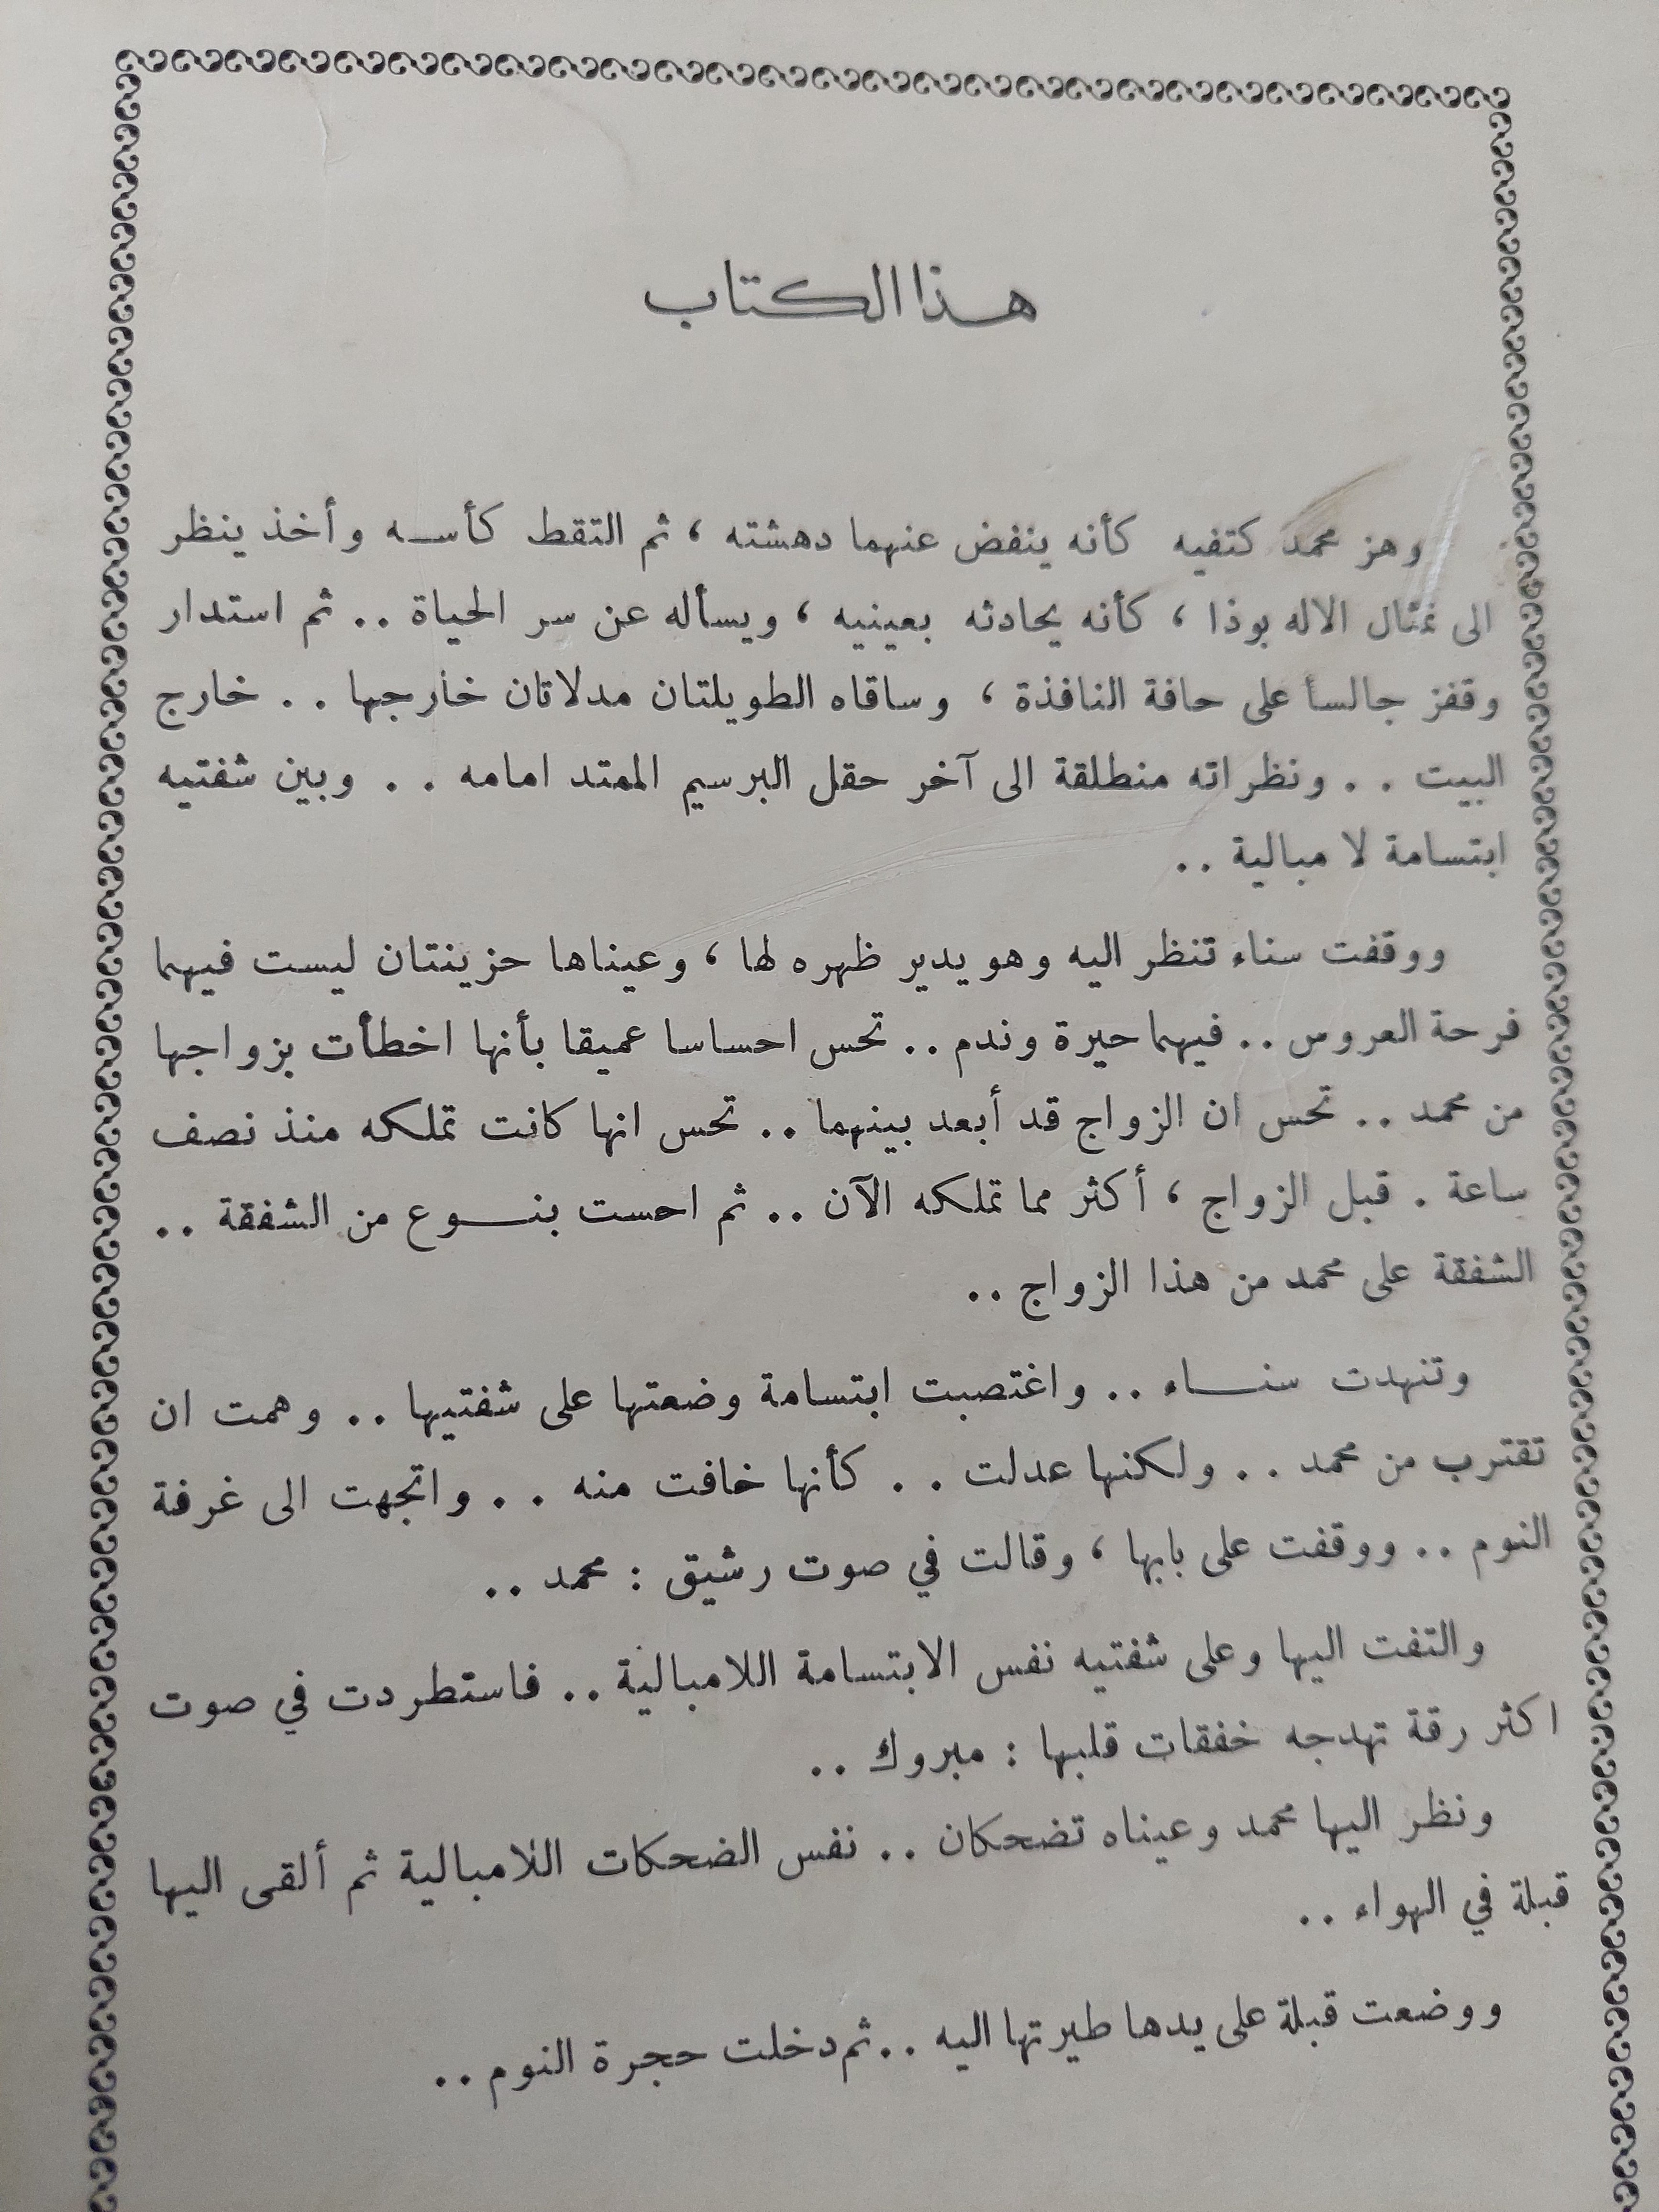 هذا الكتاب
وهز محمد كتفيه كأنه ينفض عنهما دهشته ، ثم التقط كأسه وأخذ ينظر
الى تمثال الاله بوذا ، كأنه يحادثه بعينيه ، ويسأله عن سر الحياة .. ثم استدار
وقفز جالسا على حافة النافذة ، وساقاه الطويلتان مدلاتان خارجها .. خارج
البيت .. ونظراته منطلقة الى آخر حقل البرسيم الممتد امامه .. وبين شفتيه
ابتسامة لا مبالية ..
ووقفت سناء تنظر اليه وهو يدير ظهره لها ، وعيناها حزينتان ليست فيهما
فرحة العروس .. فيهما حيرة وندم .. تحس احساسا عميقا بأنها اخطأت بزواجها
من محمد .. تحس ان الزواج قد أبعد بينهما .. تحس انها كانت تملكه منذ نصف
ساعة . قبل الزواج ، أكثر مما تملكه الآن .. ثم احست بنوع من الشفقة ..
الشفقة على محمد من هذا الزواج ..
وتنهدت سناء .. واغتصبت ابتسامة وضعتها على شفتيها .. وهمت ان
تقترب من محمد .. ولكنها عدلت .. كأنها خافت منه .. واتجهت الى غرفة
النوم .. ووقفت على بابها ، وقالت في صوت رشيق : محمد ..
والتفت اليها وعلى شفتيه نفس الابتسامة اللامبالية .. فاستطردت في صوت
اكثر رقة تهدجه خفقات قلبها : مبروك ..
ونظر اليها محمد وعيناه تضحكان .. نفس الضحكات اللامبالية ثم ألقى اليها
قبلة في الهواء ..
ووضعت قبلة على يدها طيرتها اليه .. ثم دخلت حجرة النوم ..